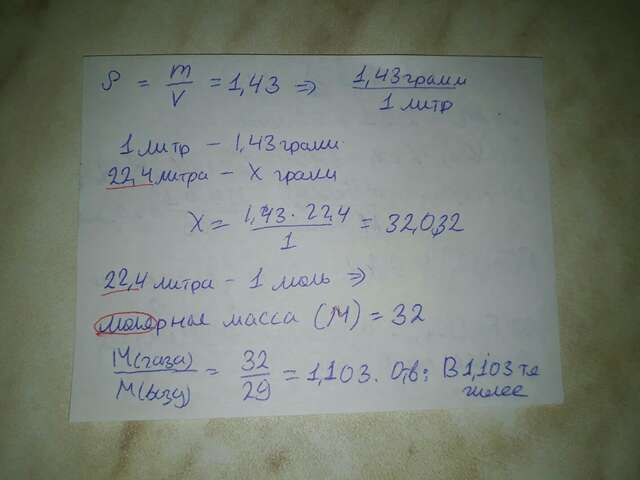 ρ = m/V = 1,43 => 1,43 грамм / 1 литр
1 литр - 1,43 грамм
22,4 литра - X грамм
X = 1,43 · 22,4 / 1 = 32,032
22,4 литра - 1 моль =>
молярная масса (M) = 32
M(газа) / M(возд) = 32 / 29 = 1,103. Отв: В 1,103 тя
желее